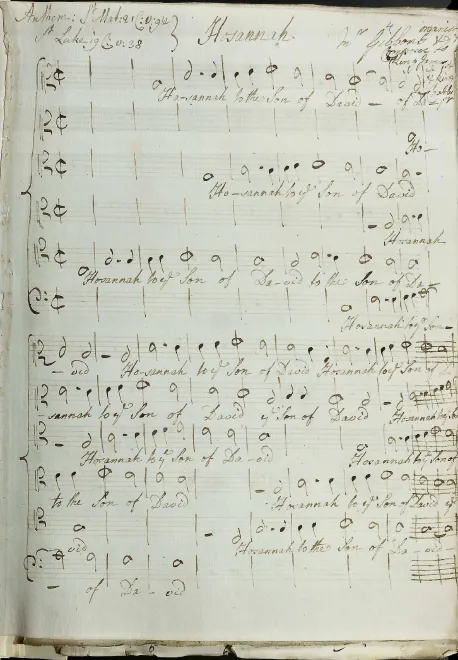 Anthem: St Mat: 21 C: v: 9
St Luke 19 C: v: 38
Hosannah.
Mr Gibbons
Ho-sannah to the Son of David - of Da-
Ho-
Ho-sannah to ye Son of David
Hosannah
Hosannah to ye Son of Da-vid to the Son of Da-
Hosannah to ye Son
- vid Ho-sannah to ye Son of David Hosannah to ye Son of
sannah to ye Son of David ye Son of David Hosannah to
Hosannah to ye Son of Da-vid Hosannah to ye Son of
to the Son of David Hosannah to ye Son of David
vid Hosannah to the Son of Da-vid
- of Da-vid